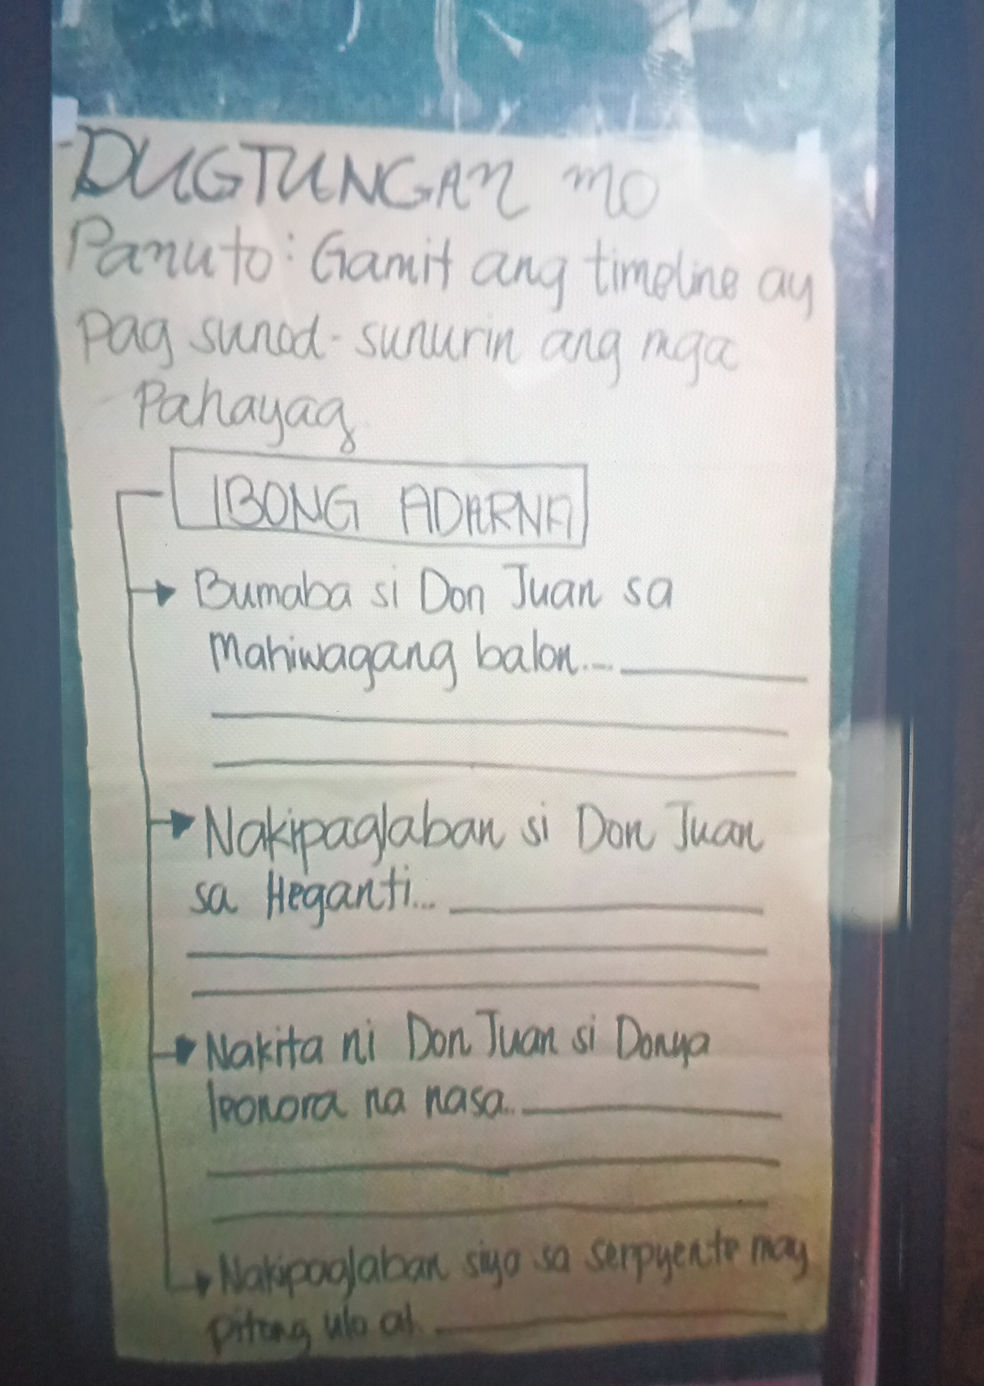 DUGTUNGAN mo
Panuto: Gamit ang timeline ay
pag sunod-sunurin ang mga
Pahayag
IBONG ADARNA
Bumaba si Don Juan sa
Mahiwagang balon....
Nakipaglaban si Don Juan
sa Heganti...
Nakita ni Don Juan si Donya
leonora na nasa..
Nakipaglaban siya sa serpyente may
pitong ulo at